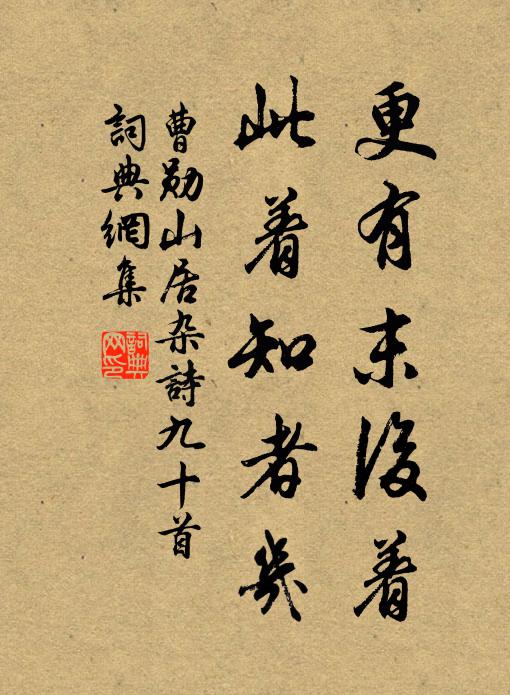 更有末後着
此着知者几
曹勛山居杂詩九十首
詞典網集
詞典网印